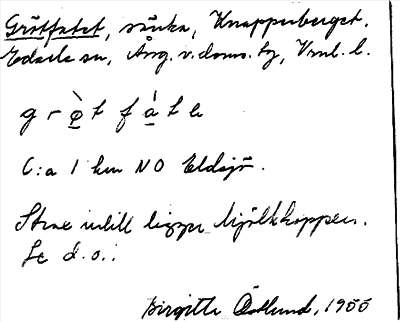 Grötfatet, sänka, Knapperberget.
Edselе sn, Ång. v. doms. tg, Vnl. l.
g r ö̀ t f á t e
C:a 1 km NO Eldsjö.
Strax intill ligger Mjölkkoppen.
Se d. o.:
Birgitta Östlund, 1955